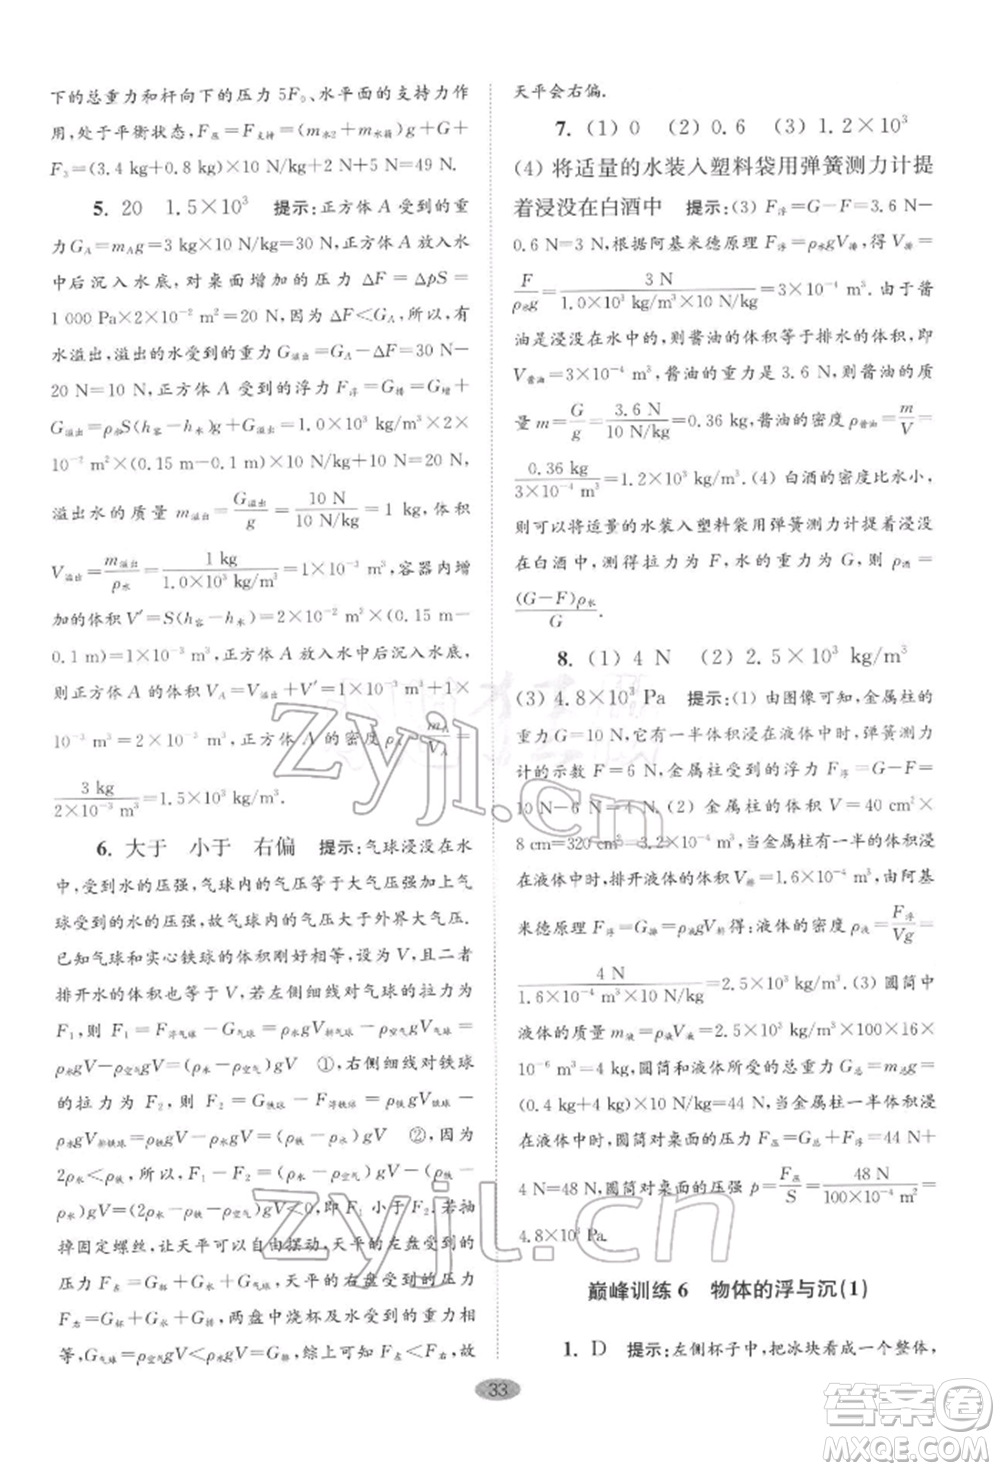 下的总重力和杆向下的压力 5F₀、水平面的支持力作
用,处于平衡状态,F压=F支持=(m水2+m水箱)g+
F₃=(3.4 kg+0.5 kg)×10 N/kg+2 N+5 N=49 N.
5. 20 1.5×10³ 提示:正方体 A 受到的重
力 G_A=m_A g=3 kg×10 N/kg=30 N,正方体 A 放入水
中后沉入水底,对桌面增加的压力 ΔF=ΔpS=
1 000 Pa×2×10⁻² m²=20 N,因为 ΔF<G_A,所以,有
水溢出,溢出的水受到的重力 G溢出=G_A-ΔF=30 N-
20 N=10 N,正方体 A 受到的浮力 F浮=G排=G增+
G溢出=ρ水S(h容-h水)g+G溢出=1.0×10³ kg/m³×2×
10⁻² m²×(0.15 m-0.1 m)×10 N/kg+10 N=20 N,
溢出水的质量 m溢出=G溢出/g=10 N/10 N/kg=1 kg,体积
V溢出=m溢出/ρ水=1 kg/1.0×10³ kg/m³=1×10⁻³ m³,容器内增
加的体积 V′=S(h容-h水)=2×10⁻² m²×(0.15 m-
0.1 m)=1×10⁻³ m³,正方体 A 放入水中后沉入水底,
则正方体的体积 V_A=V溢出+V′=1×10⁻³ m³+1×
10⁻³ m³=2×10⁻³ m³,正方体 A 的密度 ρ_A=m_A/V_A=
3 kg/2×10⁻³ m³=1.5×10³ kg/m³.
6. 大于 小于 右偏 提示:气球浸没在水
中,受到水的压强,气球内的气压等于大气压强与气
球受到的水的压强,故气球内的气压大于外界大气压.
已知气球和实心铁球的体积刚好相等为 V,且二者
排开水的体积也等于 V,若左侧细线对气球的拉力为
F₁,则 F₁=F浮气球-G气球=ρ水gV排气球-ρ空气gV气球=
ρ水gV-ρ空气gV=(ρ水-ρ空气)gV ①,右侧细线对铁球
的拉力为 F₂,则 F₂=G铁球-F浮铁球=ρ铁gV铁球-
ρ水gV排铁球=ρ铁gV-ρ水gV=(ρ铁-ρ水)gV ②,因为
2ρ水<ρ铁,所以,F₁-F₂=(ρ水-ρ空气)gV-(ρ铁-
ρ水)gV=(2ρ水-ρ铁-ρ空气)gV<0,即 F₁小于 F₂.若抽
掉固定螺丝,让天平可以自由摆动,天平的左盘受到的
压力 F左=G杯+G水+G气球,天平的右盘受到的压力
F右=G杯+G水+G排,两盘中烧杯及水的重力相
等,G气球=ρ空气gV<ρ水gV=G排,综上可知 F左<F右,故
天平会右偏.
7. (1) 0 (2) 0.6 (3) 1.2×10³
(4) 将适量的水装入塑料袋用弹簧测力计提
着浸没在白酒中 提示:(3) F浮=G-F=3.6 N-
0.6 N=3 N,根据阿基米德原理 F浮=ρ水gV排,得 V排=
F/ρ水g=3 N/1.0×10³ kg/m³×10 N/kg=3×10⁻⁴ m³.由于酱
油是浸没在水中的,则酱油的体积等于排水的体积,即
V酱油=3×10⁻⁴ m³,酱油的重力是 3.6 N,则酱油的质
量 m=G/g=3.6 N/10 N/kg=0.36 kg,酱油的密度 ρ酱油=m/V=
0.36 kg/3×10⁻⁴ m³=1.2×10³ kg/m³.(4) 白酒的密度比水小,
则可以将适量的水装入塑料袋用弹簧测力计提着浸没
在白酒中,测得拉力为 F,水的重力为 G,则 ρ酒=
(G-F)ρ水/G.
8. (1) 4 N (2) 2.5×10³ kg/m³
(3) 4.8×10³ Pa 提示:(1) 由图像可知,金属柱的
重力 G=10 N,它有一半浸在液体中时,弹簧测力
计的示数 F=6 N,金属柱受到的浮力 F浮=G-F=
10 N-6 N=4 N.(2) 金属柱的体积 V=40 cm²×
8 cm=320 cm³=3.2×10⁻⁴ m³,金属柱有一半的体积浸
在液体中时,排开液体的体积 V排=1.6×10⁻⁴ m³,由阿基
米德原理 F浮=G排=ρ液gV排得:液体的密度 ρ液=F浮/Vg=
4 N/1.6×10⁻⁴ m³×10 N/kg=2.5×10³ kg/m³.(3) 圆筒中
液体的质量 m液=ρ液V液=2.5×10³×100×16×
10⁻⁶ kg=4 kg,圆筒和液体所受的总重力 G总=m总g=
(0.4 kg+4 kg)×10 N/kg=44 N,当金属柱一半体积浸
在液体中时,圆筒对桌面的压力 F压=G总+F浮=44 N+
4 N=48 N,圆筒对桌面的压强 p=F压/S=48 N/100×10⁻⁴ m²=
4.8×10³ Pa.
巅峰训练 6 物体的浮与沉(1)
1. D 提示:左侧杯子中,把冰块看成一个整体,
33
zyjl.cn
zyjl.cn
答案圈
MXQE.COM